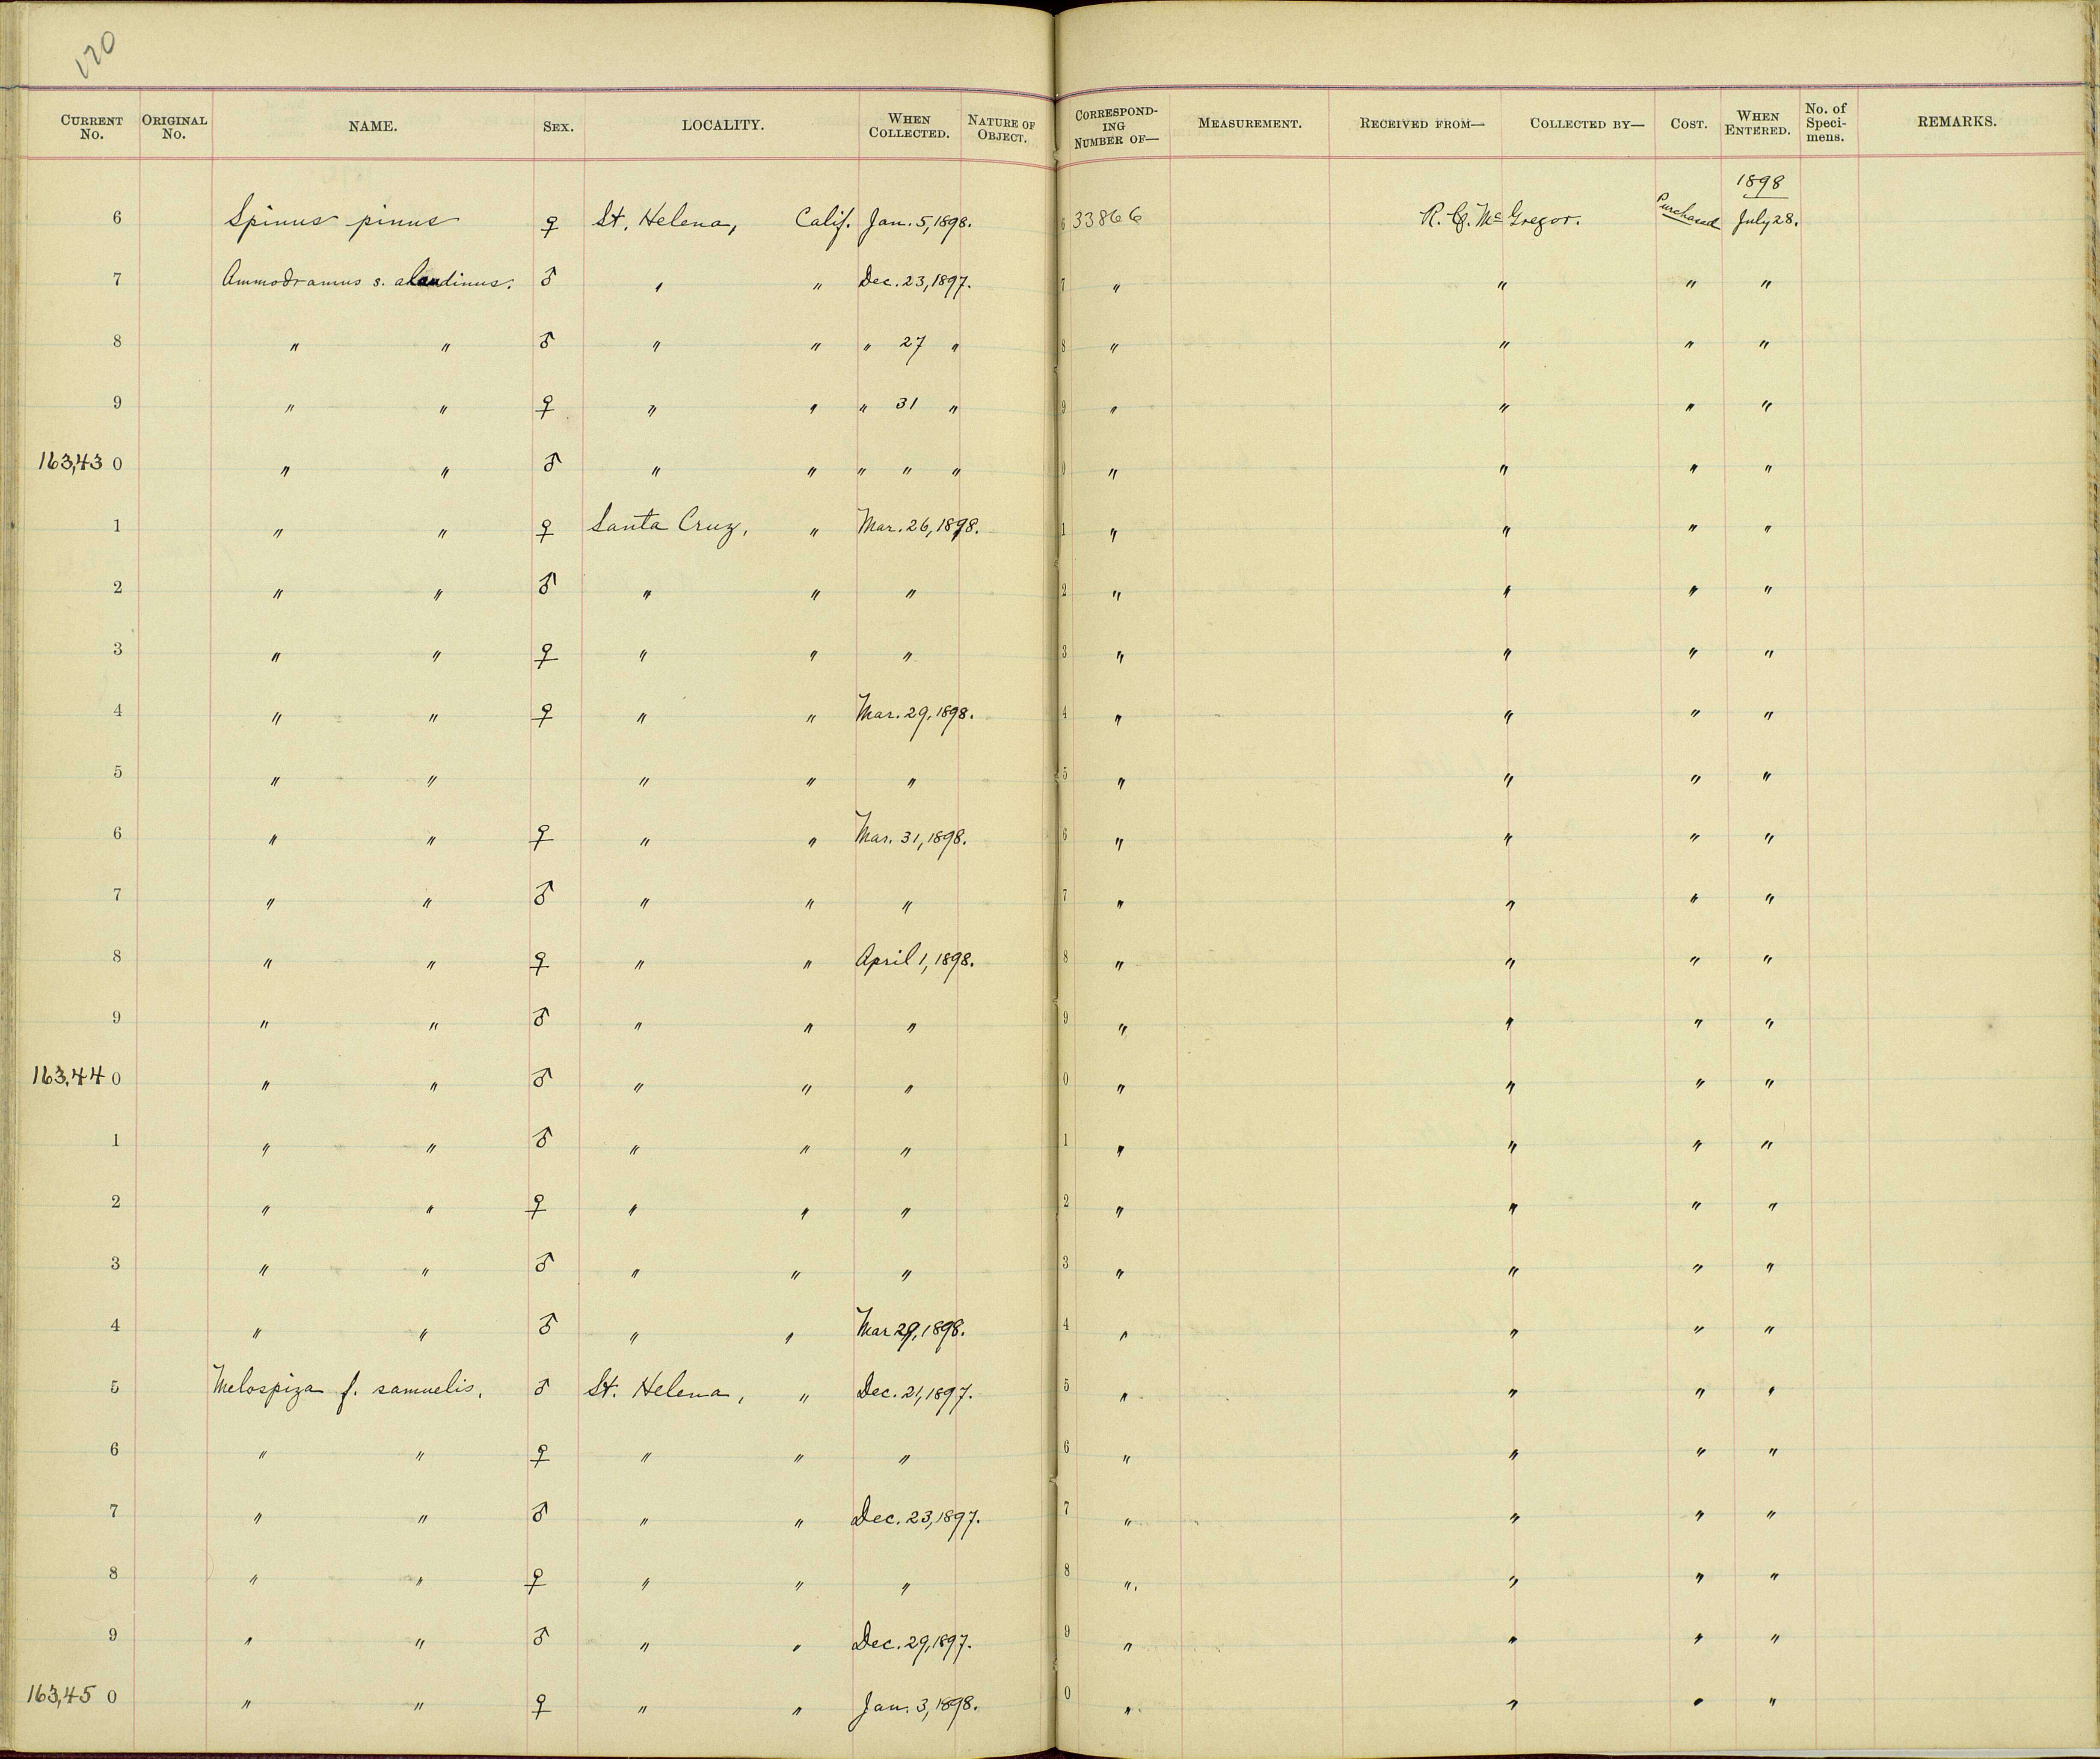 120
CURRENT No. ORIGINAL No. NAME. SEX. LOCALITY. WHEN COLLECTED. NATURE OF OBJECT. CORRESPOND-ING NUMBER OF— MEASUREMENT. RECEIVED FROM— COLLECTED BY— COST. WHEN ENTERED. No. of Speci-mens. REMARKS.
1898
6 Spinus pinus ♀ St. Helena, Calif. Jan. 5, 1898. 6 33866 R. C. McGregor. Purchased July 28.
7 Ammodramus s. alaudinus. ♂ " " Dec. 23, 1897. 7 " " " "
8 " " ♂ " " " 27 " 8 " " " "
9 " " ♀ " " " 31 " 9 " " " "
163,430 " " ♂ " " " " " 0 " " " "
1 " " ♀ Santa Cruz, " Mar. 26, 1898. 1 " " " "
2 " " ♂ " " " 2 " " " "
3 " " ♀ " " " 3 " " " "
4 " " ♀ " " Mar. 29, 1898. 4 " " " "
5 " " " " " 5 " " " "
6 " " ♀ " " Mar. 31, 1898. 6 " " " "
7 " " ♂ " " " 7 " " " "
8 " " ♀ " " April 1, 1898. 8 " " " "
9 " " ♂ " " " 9 " " " "
163,440 " " ♂ " " " 0 " " " "
1 " " ♂ " " " 1 " " " "
2 " " ♀ " " " 2 " " " "
3 " " ♂ " " " 3 " " " "
4 " " ♂ " " Mar 29, 1898. 4 " " " "
5 Melospiza f. samuelis. ♂ St. Helena, " Dec. 21, 1897. 5 " " " "
6 " " ♀ " " " 6 " " " "
7 " " ♂ " " Dec. 23, 1897. 7 " " " "
8 " " ♀ " " " 8 " " " "
9 " " ♂ " " Dec. 29, 1897. 9 " " " "
163,450 " " ♀ " " Jan. 3, 1898. 0 " " " "